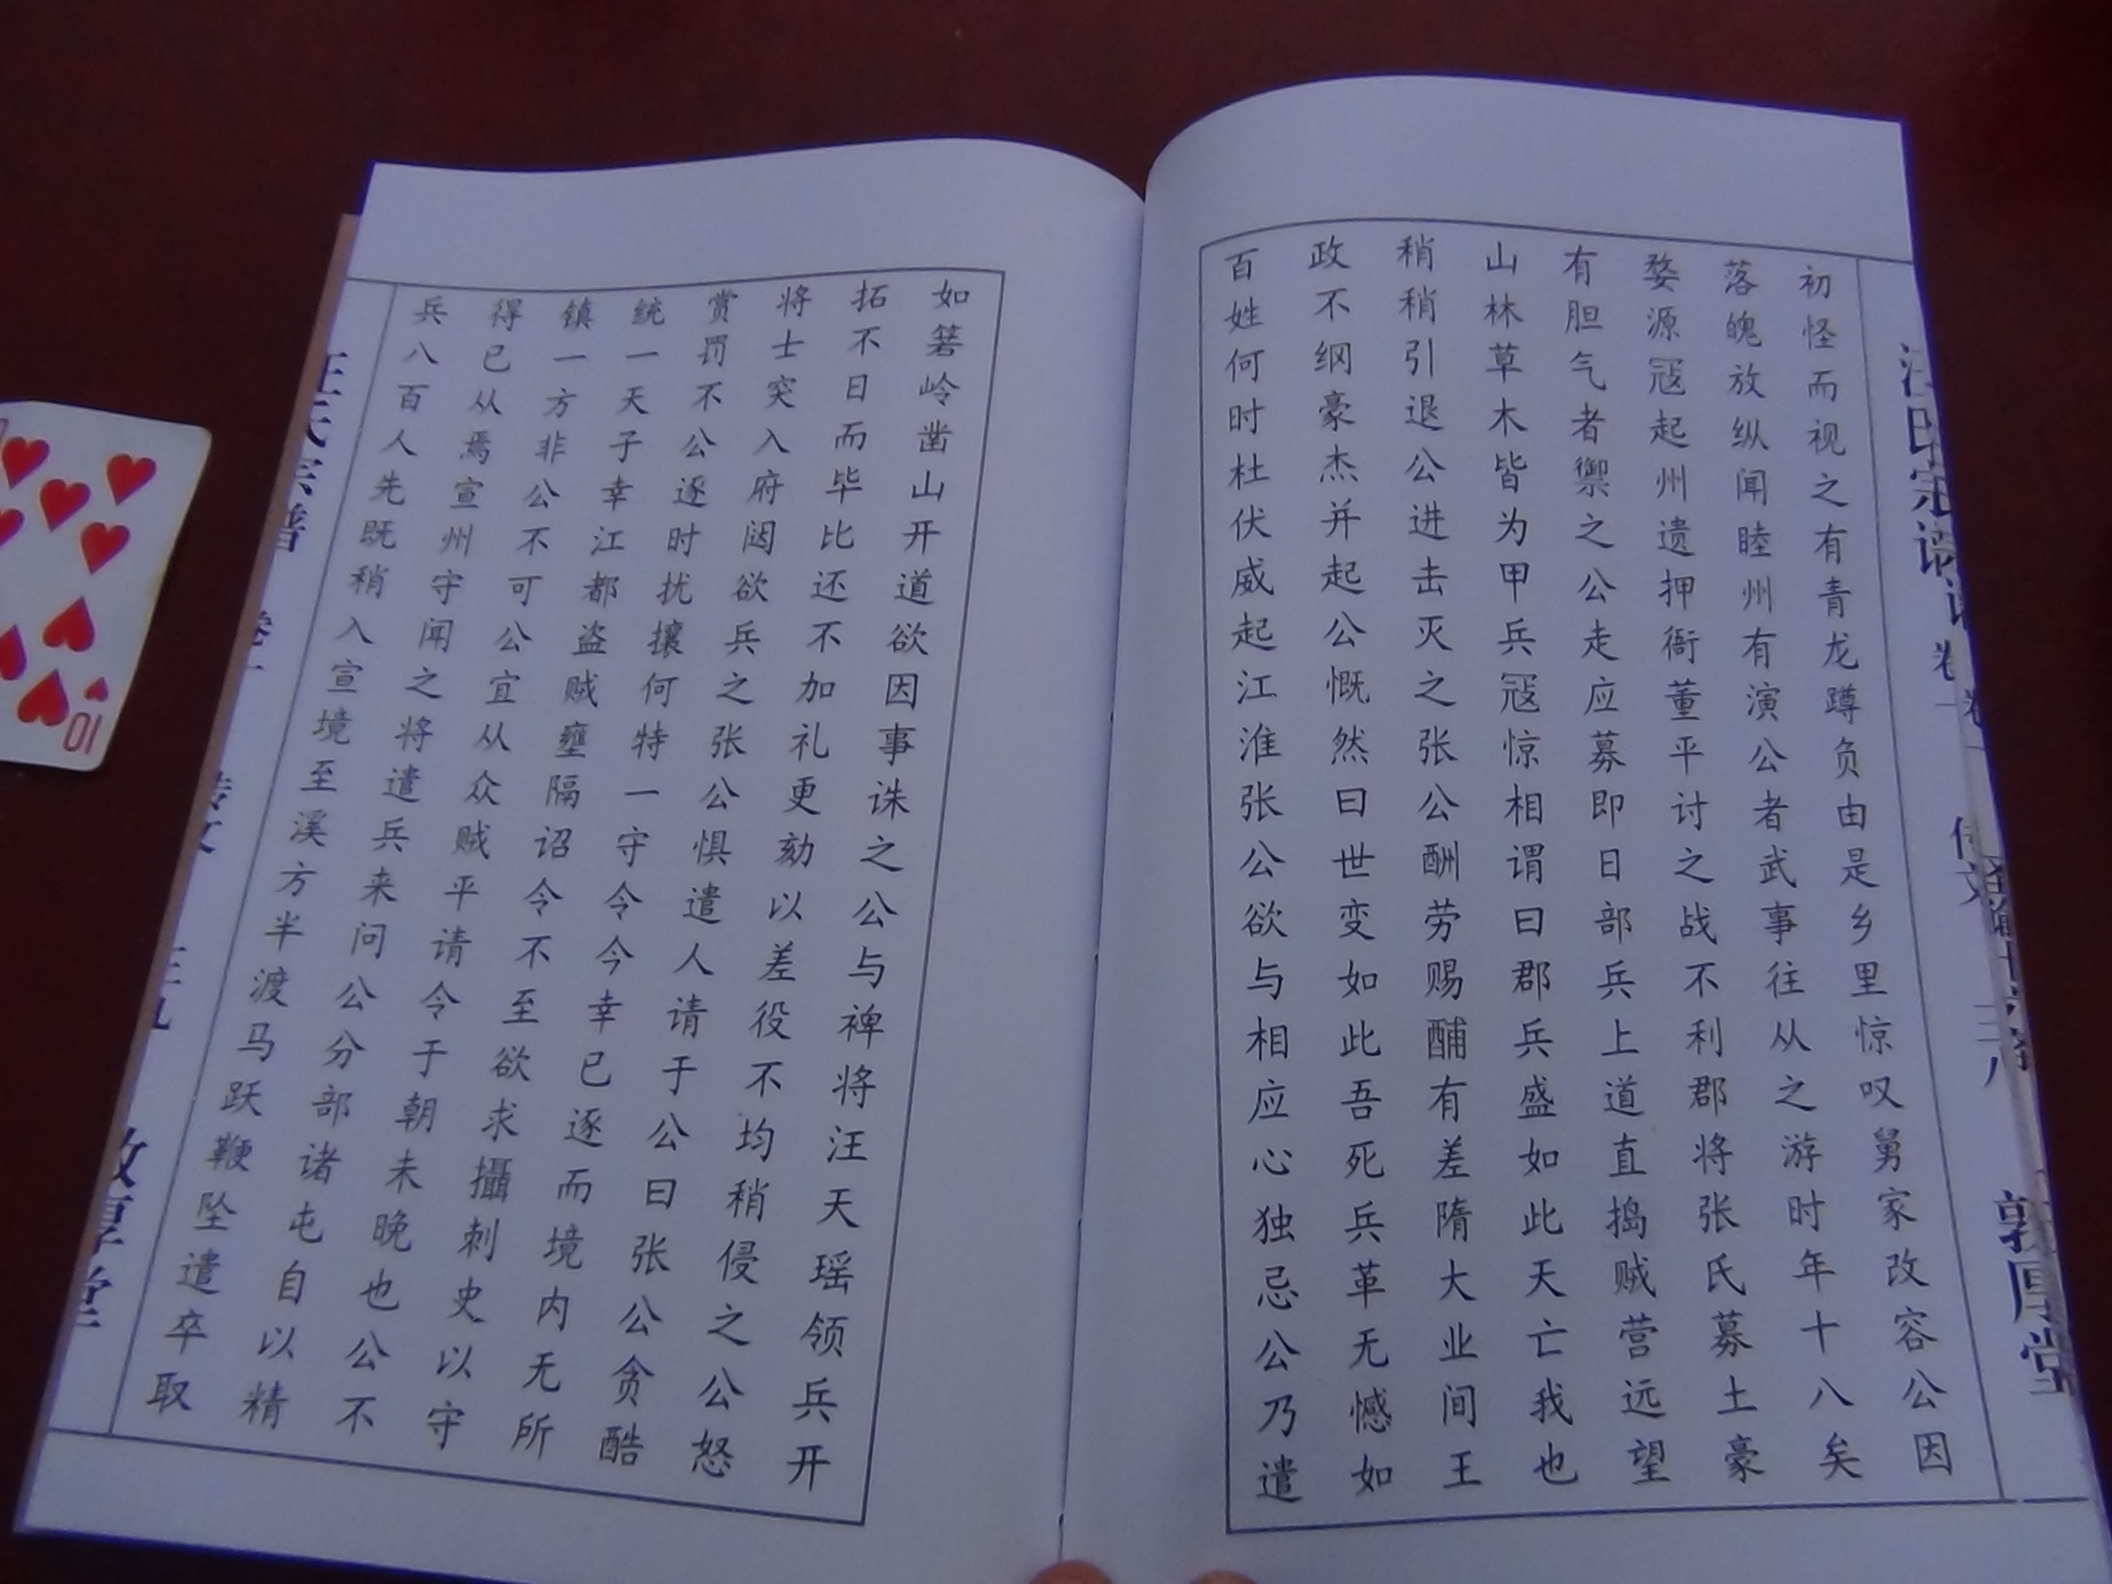 初怪而视之有青龙蹲负由是乡里惊叹舅家改容公因
落魄放纵闻睦州有演公者武事往从之游时年十八矣
婺源寇起州遗押衙董平讨之战不利郡将张氏募土豪
有胆气者禦之公走应募即日部兵上道直捣贼营远望
山林草木皆为甲兵寇惊相谓曰郡兵盛如此天亡我也
稍稍引退公进击灭之张公酬劳赐酺有差隋大业间王
政不纲豪杰并起公慨然曰世变如此吾死兵革无憾如
百姓何时杜伏威起江淮张公欲与相应心独忌公乃遣
如箬岭凿山开道欲因事诛之公与裨将汪天瑶领兵开
拓不日而毕比还不加礼更劾以差役不均稍侵之公怒
将士突入府闼欲兵之张公惧遣人请于公曰张公贪酷
赏罚不公逐时扰攘何特一守令今幸已逐而境内无所
统一天子幸江都盗贼壅隔诏令不至欲求攝刺史以守
镇一方非公不可公宜从众贼平请令于朝未晚也公不
得已从焉宣州守闻之将遣兵来问公分部诸屯自以精
兵八百人先既稍入宣境至溪方半渡马跃鞭坠遣卒取
汪氏宗谱 卷一 传文 三八 敦厚堂
汪氏宗谱 卷一 传文 三九 敦厚堂
10